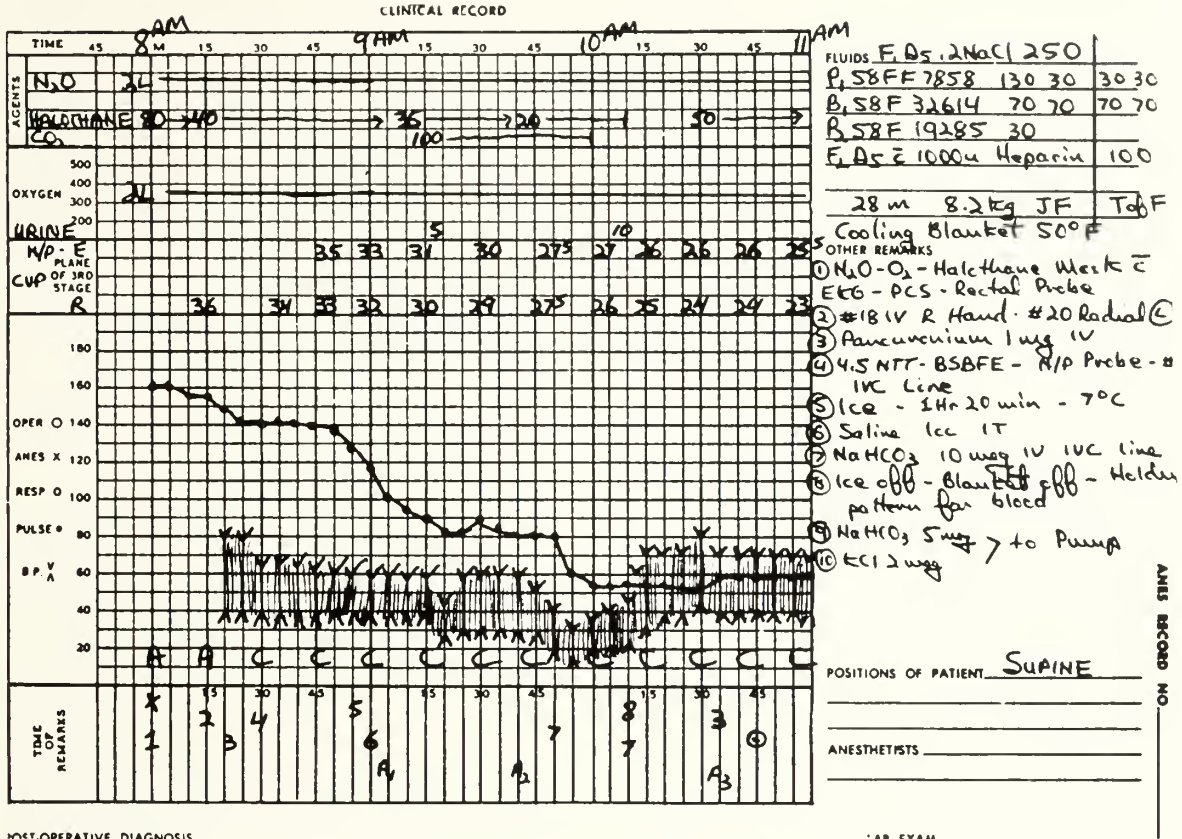 CLINICAL RECORD
8 AM 9 AM 10 AM 11 AM
TIME 45 M 15 30 45 15 30 45 15 30 45
AGENTS
N₂O 3L
HALOTHANE 80 → 40 → 36 → 20 → 50 →
CO₂ 100
500
400
OXYGEN 300 2L
200
URINE 5 10
N/P - E 35 33 31 30 27⁵ 27 26 26 26 25⁵
PLANE OF 3RD STAGE
CUP
R 36 34 33 32 30 29 27⁵ 26 25 24 24 23
180
160
OPER O 140
ANES X 120
RESP O 100
PULSE ● 80
B.P. V Λ 60
40
20
A A C C C C C C C C C C C
15 30 45 15 30 45 15 30 45
TIME OF REMARKS
X 1 2 3 4 5 6 7 8 7 3 ⑥
A₁ A₂ A₃
FLUIDS F₁ D5 .2NaCl 250
P₁ 58FF 7858 130 30 30 30
B₁ 58F 32614 70 70 70 70
B₂ 58F 19285 30
F₂ D5 c̄ 1000u Heparin 100
28 m 8.2 kg JF TofF
Cooling Blanket 50°F
OTHER REMARKS
① N₂O-O₂-Halothane Mask c̄
EKG - PCS - Rectal Probe
② #18 IV R Hand - #20 Radial Ⓛ
③ Pancuronium 1 mg IV
④ 4.5 NTT - BSBFE - N/P Probe - #
IVC Line
⑤ Ice - 1Hr 20 min - 7°C
⑥ Saline 1cc IT
⑦ NaHCO₃ 10 meq IV IVC line
⑧ Ice off - Blanket off - Holding
pattern for blood
⑨ NaHCO₃ 5 meq > to Pump
⑩ KCl 2 meq
POSITIONS OF PATIENT SUPINE
ANESTHETISTS
ANES RECORD NO.
POST-OPERATIVE DIAGNOSIS
LAB EXAM